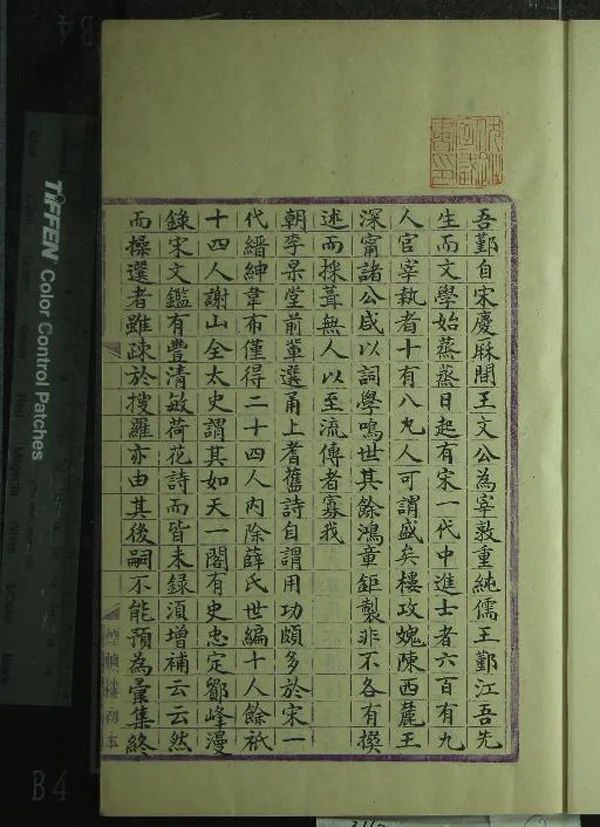 吾鄞自宋慶厤間王文公為宰敦重純儒王鄞江吾先
生而文學始蒸蒸日起有宋一代中進士者六百有九
人官宰執者十有八九人可謂盛矣樓攻媿陳西麓王
深甯諸公咸以詞學鳴世其餘鴻章鉅製非不各有撰
述而採葺無人以至流傳者寡我
朝李杲堂前輩選甬上耆舊詩自謂用功頗多於宋一
代縉紳韋布僅得二十四人內除薛氏世編十人餘祇
十四人謝山全太史謂其如天一閣有史忠定鄮峰漫
錄宋文鑑有豐清敏荷花詩而皆未錄須增補云云然
而操選者雖疎於搜羅亦由其後嗣不能預為彙集終
TIFFEN Color Control Patches
B4
B4